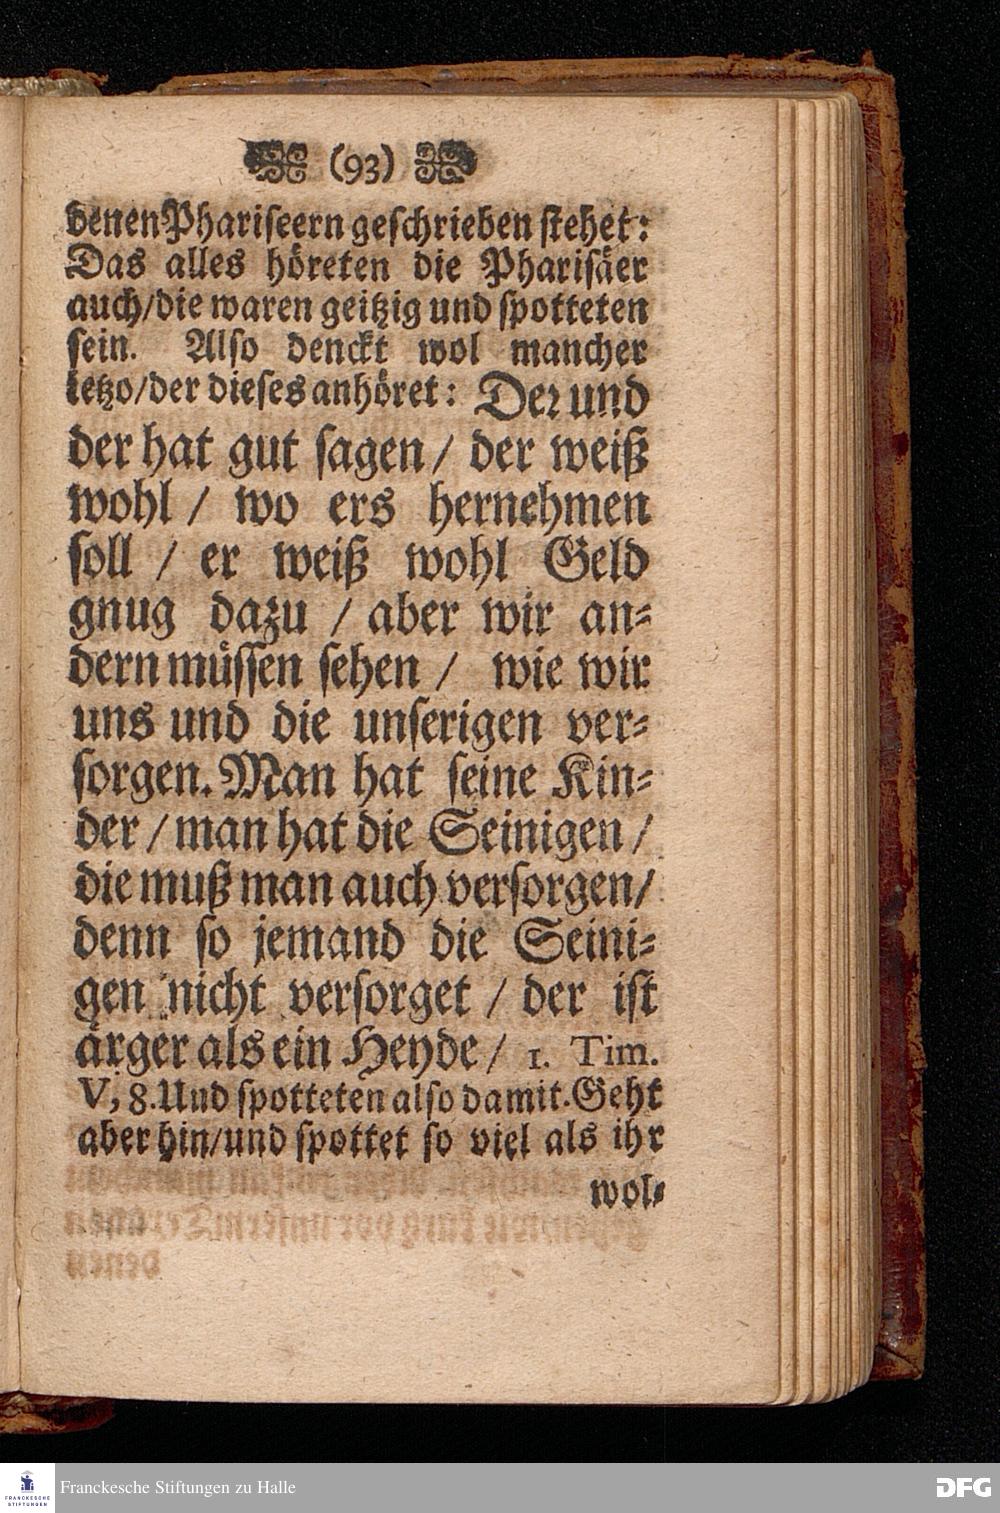 (93)
denen Phariseern geschrieben stehet:
Das alles höreten die Pharisäer
auch/die waren geitzig und spotteten
sein. Also denckt wol mancher
ietzo/der dieses anhöret: Der und
der hat gut sagen/ der weiß
wohl / wo ers hernehmen
soll / er weiß wohl Geld
gnug dazu / aber wir an-
dern müssen sehen / wie wir
uns und die unserigen ver-
sorgen. Man hat seine Kin-
der / man hat die Seinigen /
die muß man auch versorgen/
denn so jemand die Seini-
gen nicht versorget / der ist
ärger als ein Heyde / 1. Tim.
V, 8. Und spotteten also damit. Geht
aber hin/und spottet so viel als ihr
wol-
FRANCKESCHE
STIFTUNGEN
Franckesche Stiftungen zu Halle
DFG